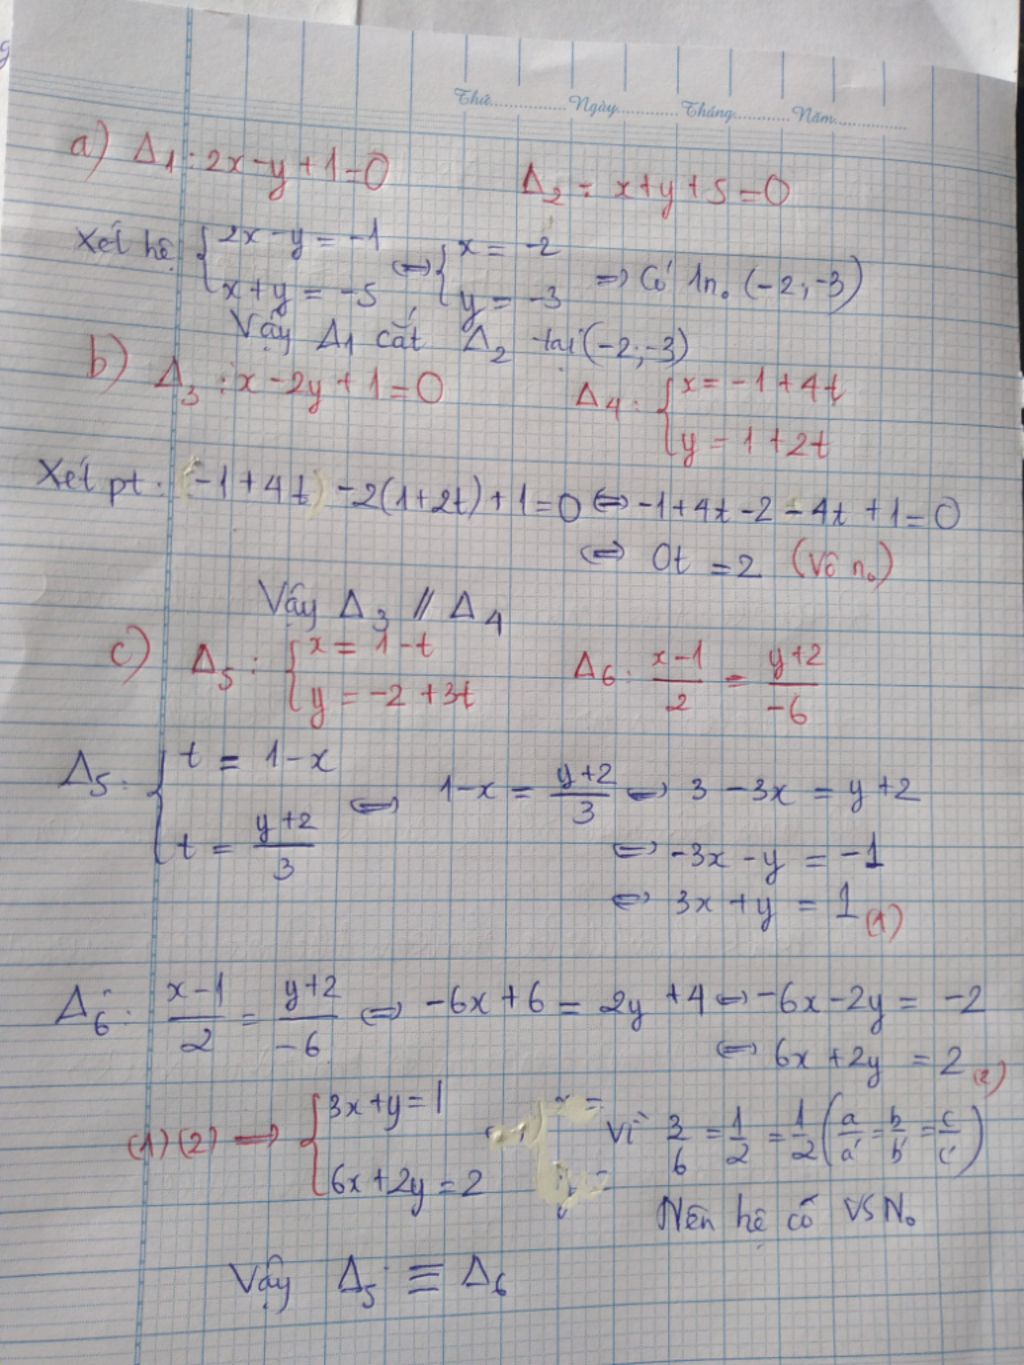 Thứ............Ngày............Tháng............Năm............
a) Δ1 : 2x - y + 1 = 0    Δ2 = x + y + 5 = 0
Xét hệ { 2x - y = -1 ; x + y = -5 ⇔ { x = -2 ; y = -3 ⇒ Có 1n₀ (-2;-3)
Vậy Δ1 cắt Δ2 tại (-2;-3)
b) Δ3 : x - 2y + 1 = 0    Δ4 : { x = -1 + 4t ; y = 1 + 2t
Xét pt : (-1 + 4t) - 2(1 + 2t) + 1 = 0 ⇔ -1 + 4t - 2 - 4t + 1 = 0
⇔ 0t = 2 (Vô n₀)
Vậy Δ3 // Δ4
c) Δ5 : { x = 1 - t ; y = -2 + 3t    Δ6 : (x-1)/2 = (y+2)/-6
Δ5 : { t = 1 - x ; t = (y+2)/3 ⇔ 1 - x = (y+2)/3 ⇔ 3 - 3x = y + 2
⇔ -3x - y = -1
⇔ 3x + y = 1 (1)
Δ6 : (x-1)/2 = (y+2)/-6 ⇔ -6x + 6 = 2y + 4 ⇔ -6x - 2y = -2
⇔ 6x + 2y = 2 (2)
(1)(2) ⇒ { 3x + y = 1 ; 6x + 2y = 2    Vì 3/6 = 1/2 = 1/2 (a/a' = b/b' = c/c')
Nên hệ có VSN₀
Vậy Δ5 ≡ Δ6